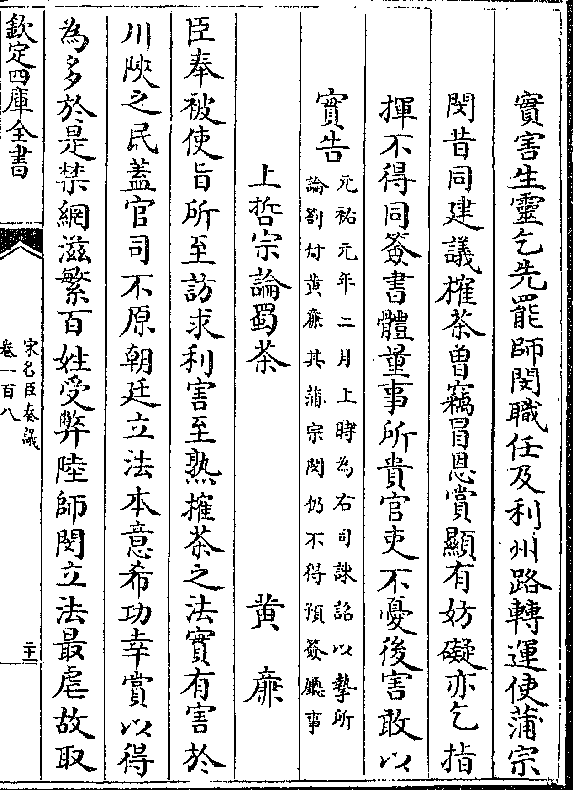 實害生靈乞先罷師閔職任及利州路轉運使蒲宗
閔昔同建議榷茶曽竊冒恩賞顯有妨礙亦乞指
揮不得同簽書體量事所貴官吏不憂後害敢以
實告
元祐元年二月上時為右司諫詔以摯所
論劄付黄廉其蒲宗閔仍不得預簽廳事
上哲宗論蜀茶
黄廉
臣奉被使旨所至訪求利害至熟榷茶之法實有害於
川陜之民蓋官司不原朝廷立法本意希功幸賞以得
為多於是禁網滋繁百姓受弊陸師閔立法最虐故取
欽定四庫全書
宋名臣奏議
卷一百八
二十